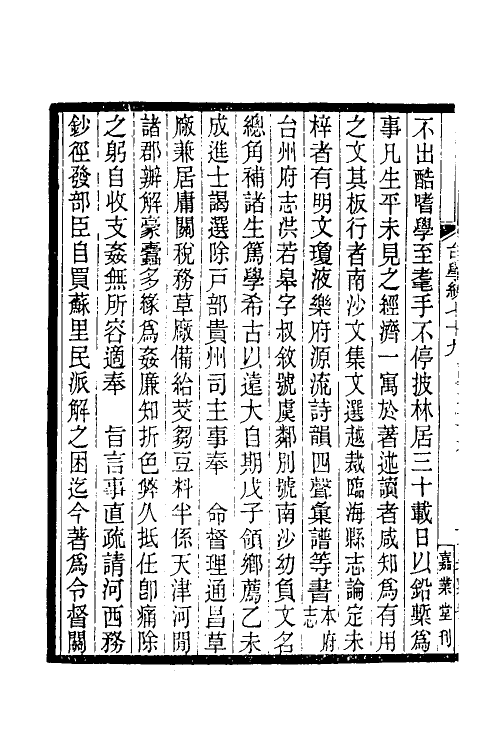 不出酷嗜學至耄手不停披林居三十載日以鉛槧為
事凡生平未見之經濟一寓於著述讀者咸知為有用
之文其板行者南沙文集文選越裁臨海縣志論定未
梓者有明文瓊液樂府源流詩韻四聲彙譜等書本府志
台州府志洪若皋字叔敘號虞鄰別號南沙幼負文名
總角補諸生篤學希古以遠大自期戊子領鄉薦乙未
成進士謁選除戸部貴州司主事奉　命督理通昌草
廠兼居庸關稅務草廠備給茭芻豆料半係天津河閒
諸郡辦解豪蠹多緣為姦廉知折色弊久抵任卽痛除
之躬自收支姦無所容適奉　旨言事直疏請河西務
鈔徑發部臣自買蘇里民派解之困迄今著為令督關
台學統七十九
嘉業堂刊